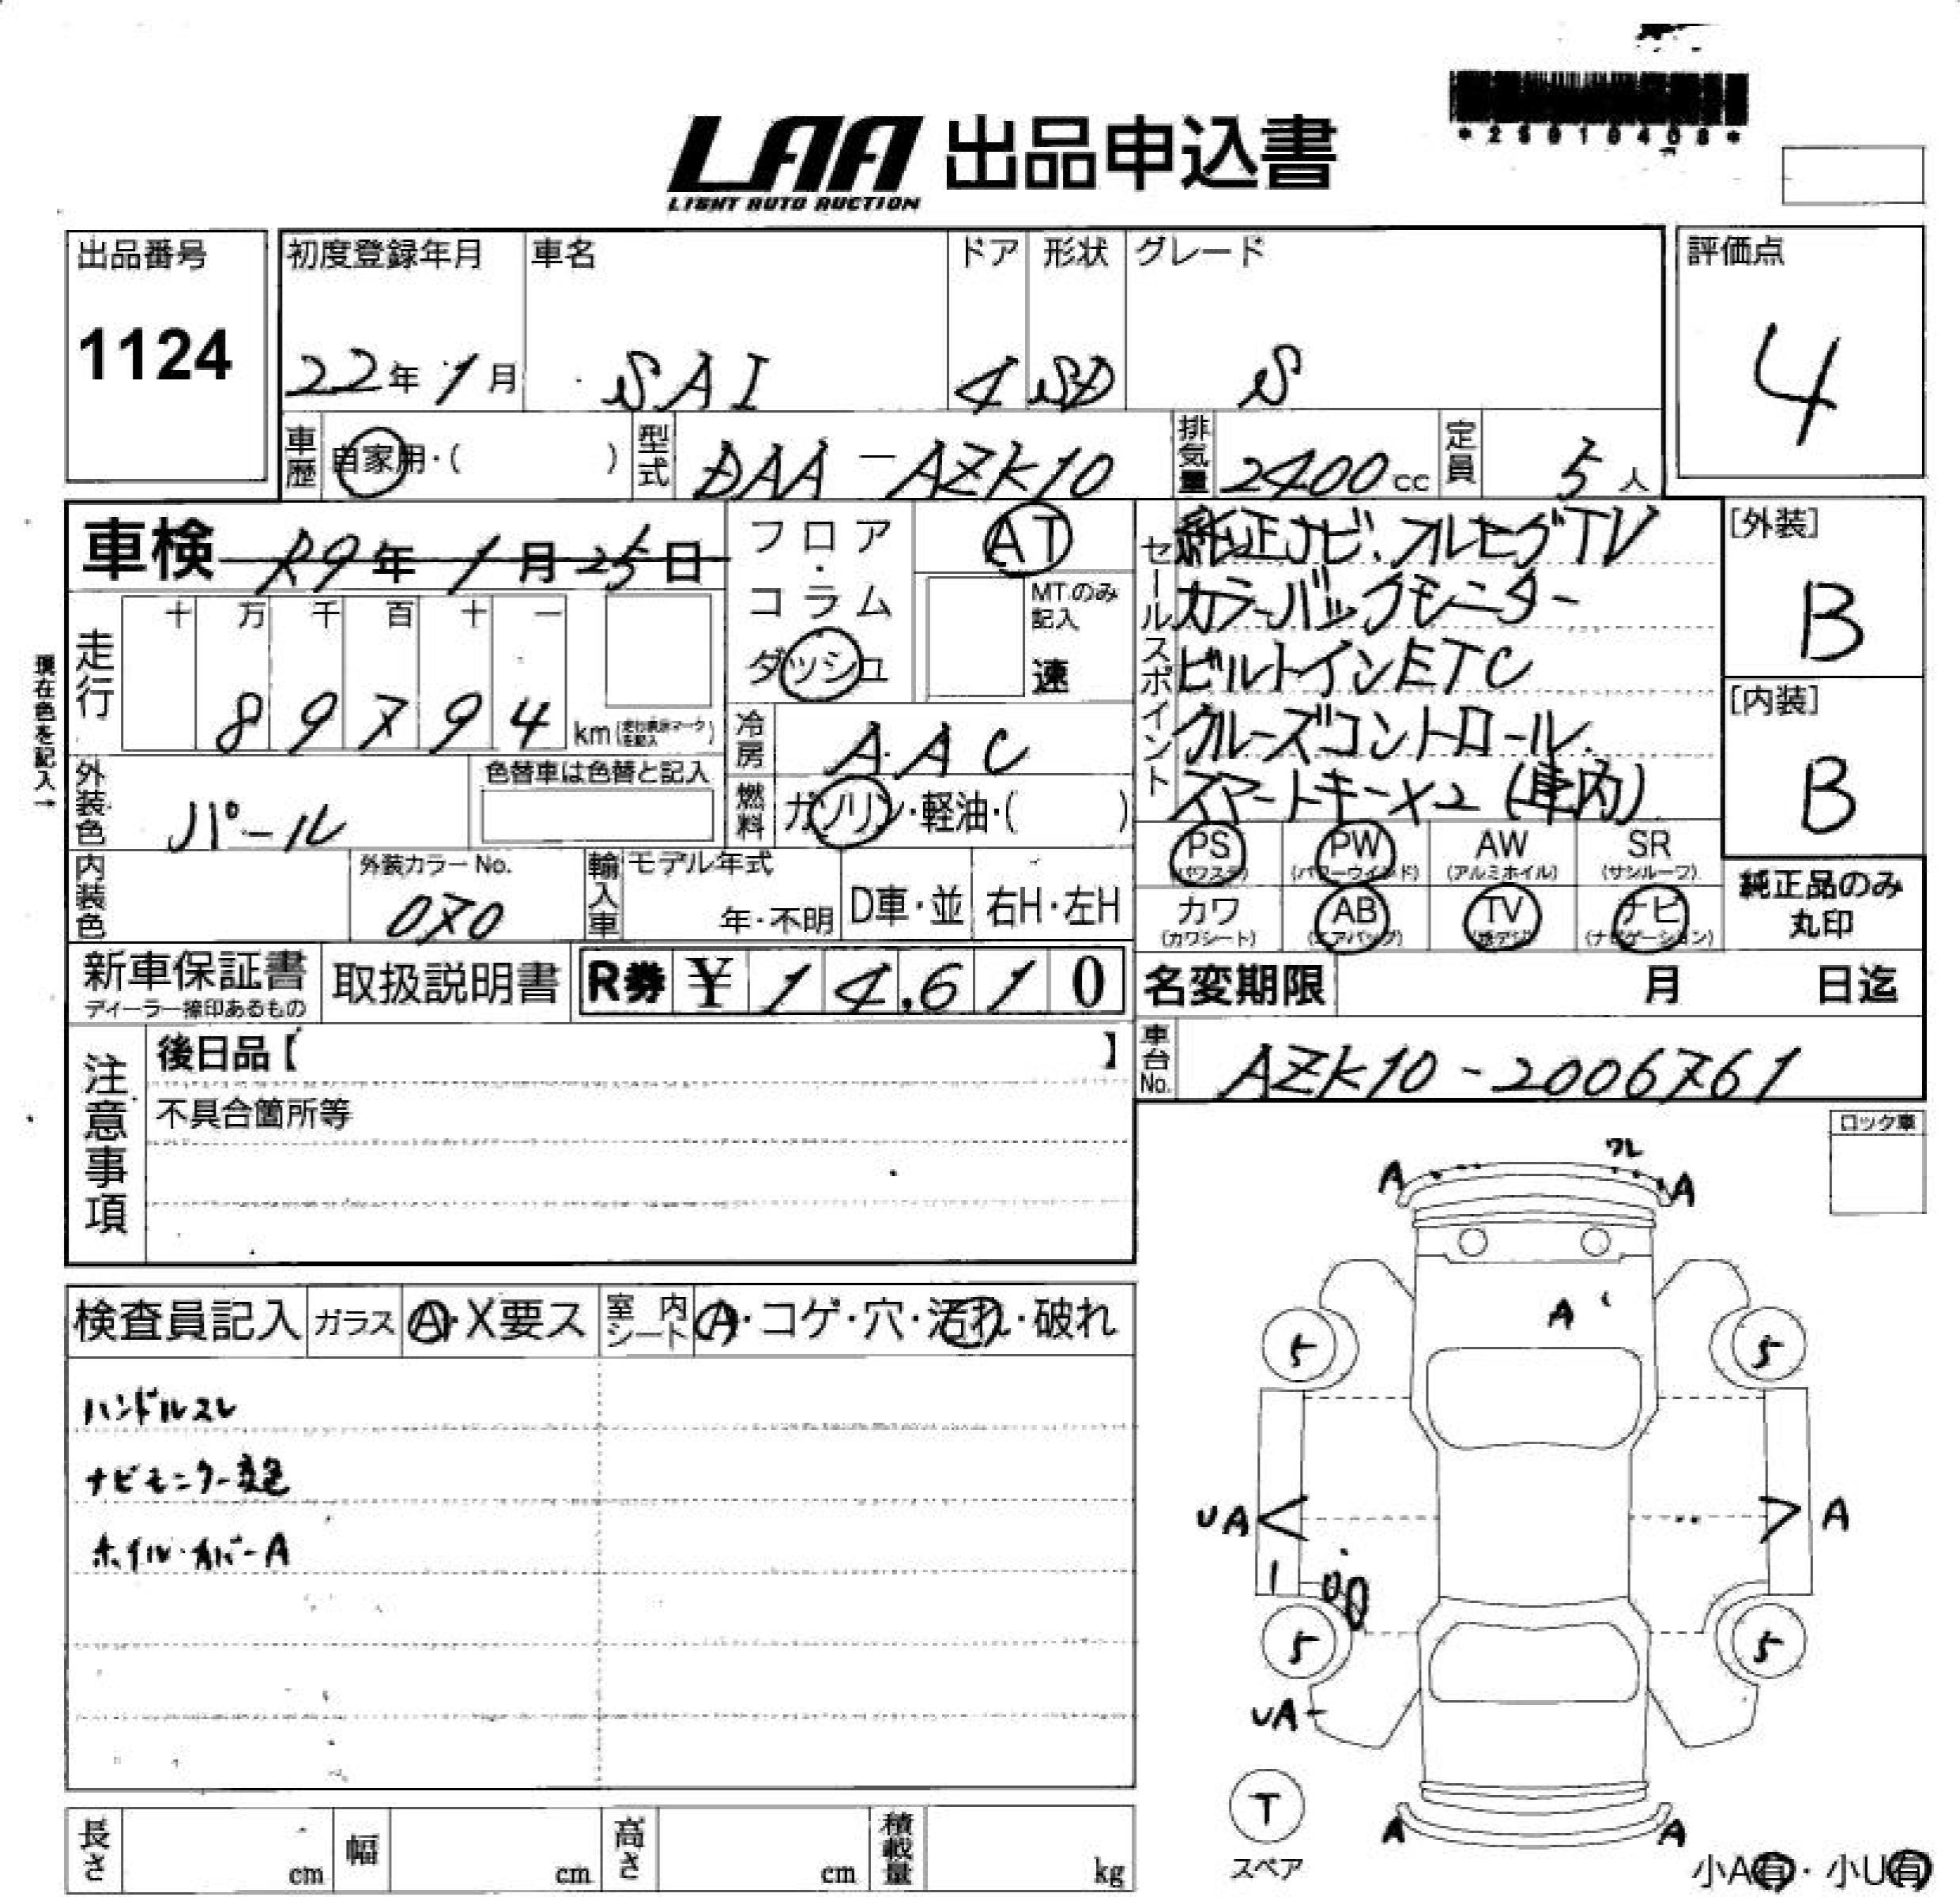 *25010408*
LAA 出品申込書
LIGHT AUTO AUCTION
出品番号
1124
初度登録年月
22年1月
車名
SAI
ドア
4
形状
SD
グレード
S
評価点
4
車歴
自家用・( )
型式
DAA-AZK10
排気量
2400cc
定員
5人
車検 R9年1月25日
フロア・コラム
ダッシュ
AT
MTのみ記入
速
セールスポイント
純正ナビ.フルセグTV
カラーバックモニター
ビルトインETC
クルーズコントロール
スマートキーX2(車内)
[外装]
B
[内装]
B
現在色を記入→
走行
十 万 千 百 十 一
89794 km
冷房
AAC
外装色
パール
色替車は色替と記入
燃料
ガソリン・軽油・( )
PS (パワステ)
PW (パワーウインド)
AW (アルミホイル)
SR (サンルーフ)
カワ (カワシート)
AB (エアバッグ)
TV (地デジ)
ナビ (ナビゲーション)
純正品のみ
丸印
内装色
外装カラーNo.
070
輸入車
モデル年式
年・不明
D車・並
右H・左H
新車保証書
ディーラー捺印あるもの
取扱説明書
R券 ¥14,610
名変期限 月 日迄
車台No.
AZK10-2006761
注意事項
後日品【 】
不具合箇所等
ロック車
検査員記入
ガラス
A・X要ス
室内シート
A・コゲ・穴・汚れ・破れ
ハンドルスレ
ナビモニター変色
ホイルカバーA
A ワレ A
A
5 5
UA A
5 5
UA
T
スペア
A A
小A有・小U有
長さ cm
幅 cm
高さ cm
積載量 kg